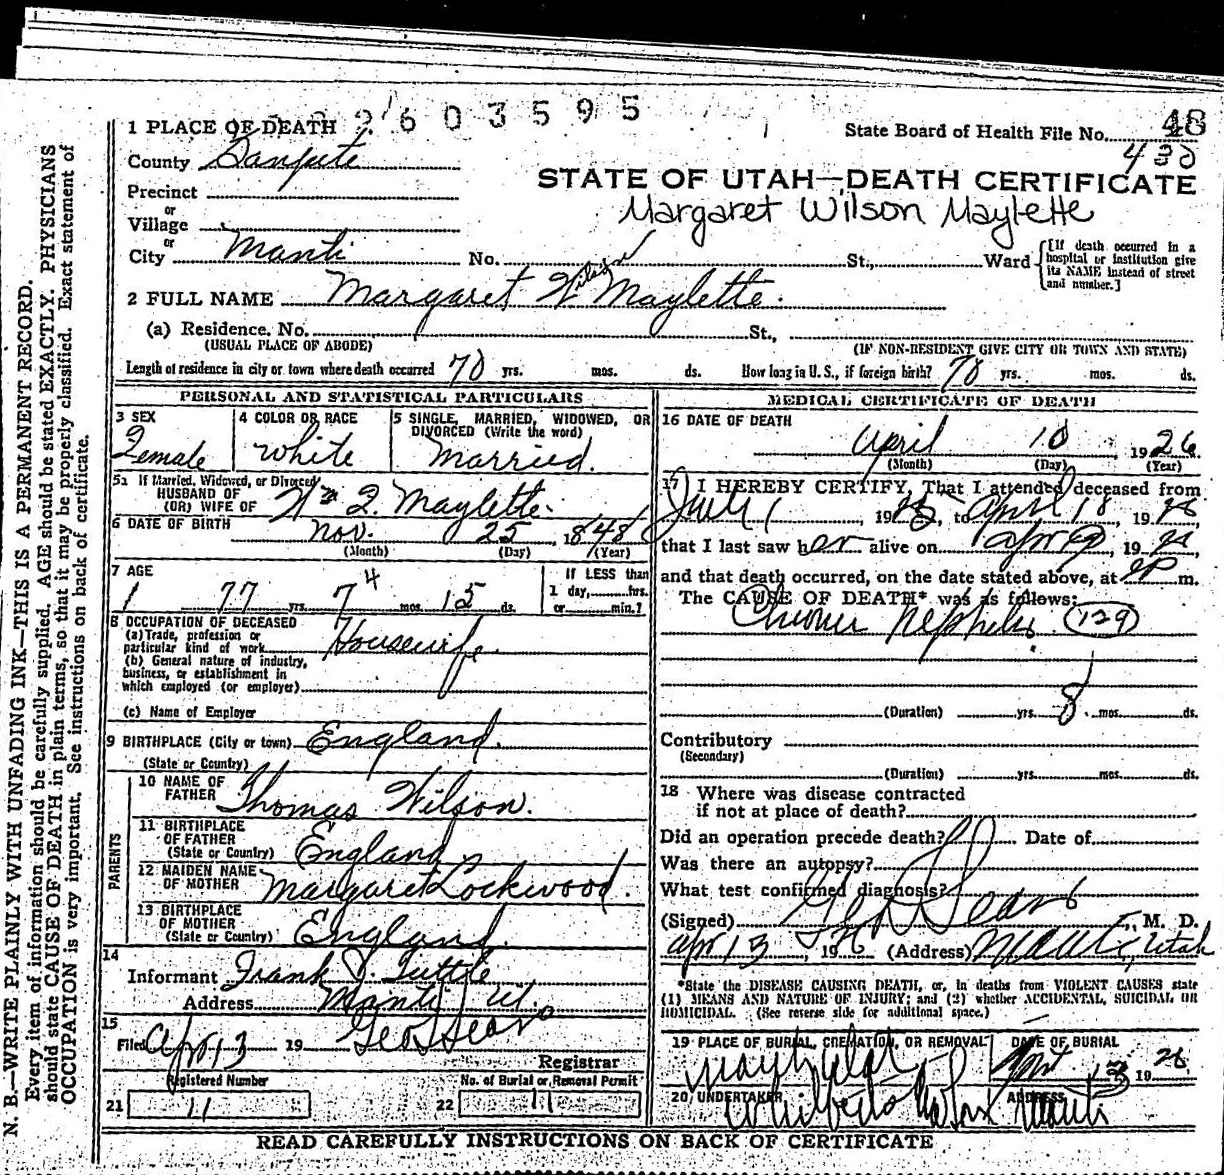 2603595
1 PLACE OF DEATH
State Board of Health File No. 48
430
County Sanpete
STATE OF UTAH—DEATH CERTIFICATE
Precinct
Margaret Wilson Maylette
or
Village
or
City Manti No. St., Ward
[If death occurred in a hospital or institution give its NAME instead of street and number.]
2 FULL NAME Margaret Wilson Maylette.
(a) Residence. No. St.,
(USUAL PLACE OF ABODE) (IF NON-RESIDENT GIVE CITY OR TOWN AND STATE)
Length of residence in city or town where death occurred 70 yrs. mos. ds. How long in U. S., if foreign birth? 70 yrs. mos. ds.
PERSONAL AND STATISTICAL PARTICULARS
3 SEX
Female
4 COLOR OR RACE
White
5 SINGLE, MARRIED, WIDOWED, OR
DIVORCED (Write the word)
Married.
5a If Married, Widowed, or Divorced
HUSBAND OF
(OR) WIFE OF Maylette.
6 DATE OF BIRTH Nov. 25 1848
(Month) (Day) (Year)
7 AGE
77 yrs. 7 4 mos. 15 ds.
If LESS than
1 day, hrs.
or min.?
8 OCCUPATION OF DECEASED
(a) Trade, profession or
particular kind of work Housewife.
(b) General nature of industry,
business, or establishment in
which employed (or employer)
(c) Name of Employer
9 BIRTHPLACE (City or town) England.
(State or Country)
PARENTS
10 NAME OF
FATHER Thomas Wilson.
11 BIRTHPLACE
OF FATHER
(State or Country) England
12 MAIDEN NAME
OF MOTHER Margaret Lockwood.
13 BIRTHPLACE
OF MOTHER
(State or Country) England.
14
Informant Frank J. Tuttle
Address Manti Ut.
15
Filed Apr 13 19 Geo L Sears
Registrar
Registered Number
21 11
No. of Burial or Removal Permit
22 11
MEDICAL CERTIFICATE OF DEATH
16 DATE OF DEATH
April 10 1926
(Month) (Day) (Year)
17 I HEREBY CERTIFY, That I attended deceased from
July 1, 19 to April 19
that I last saw her alive on Apr 9, 19
and that death occurred, on the date stated above, at P m.
The CAUSE OF DEATH* was as follows:
Chronic Nephritis (129)
(Duration) yrs. 8 mos. ds.
Contributory
(Secondary)
(Duration) yrs. mos. ds.
18 Where was disease contracted
if not at place of death?
Did an operation precede death? Date of
Was there an autopsy?
What test confirmed diagnosis?
(Signed) Geo L Sears, M. D.
Apr 13, 1926 (Address) Manti, Utah
*State the DISEASE CAUSING DEATH, or, in deaths from VIOLENT CAUSES state
(1) MEANS AND NATURE OF INJURY; and (2) whether ACCIDENTAL, SUICIDAL OR
HOMICIDAL. (See reverse side for additional space.)
19 PLACE OF BURIAL, CREMATION, OR REMOVAL
DATE OF BURIAL
13 1926
20 UNDERTAKER
ADDRESS
Manti
READ CAREFULLY INSTRUCTIONS ON BACK OF CERTIFICATE
N. B.—WRITE PLAINLY WITH UNFADING INK—THIS IS A PERMANENT RECORD.
Every item of information should be carefully supplied. AGE should be stated EXACTLY. PHYSICIANS
should state CAUSE OF DEATH in plain terms, so that it may be properly classified. Exact statement of
OCCUPATION is very important. See instructions on back of certificate.